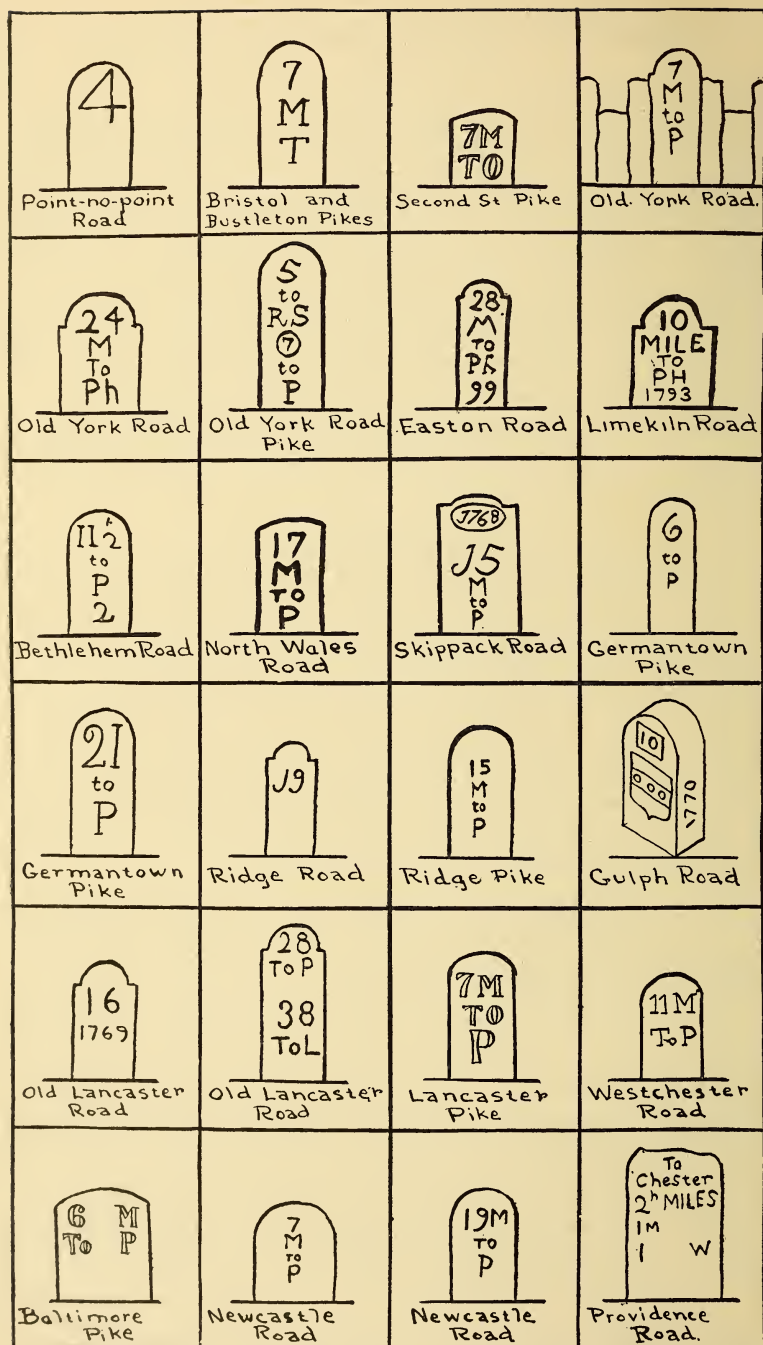 4
Point-no-point
Road
7
M
T
Bristol and
Bustleton Pikes
7M
TO
Second St Pike
7
M
to
P
Old. York Road.
24
M
To
Ph
Old York Road
5
to
RS
7
to
P
Old York Road
Pike
28
M
TO
Ph
99
Easton Road
10
MILE
TO
PH
1793
Limekiln Road
to
P
2
Bethlehem Road
17
M
TO
P
North Wales
Road
J768
J5
M
to
P
Skippack Road
6
to
P
Germantown
Pike
2I
to
P
Germantown
Pike
J9
Ridge Road
15
M
to
P
Ridge Pike
10
1770
Gulph Road
16
1769
Old Lancaster
Road
28
To P
38
To L
Old Lancaster
Road
7M
TO
P
Lancaster
Pike
11M
To P
Westchester
Road
6 M
To P
Baltimore
Pike
7
M
to
P
Newcastle
Road
19M
TO
P
Newcastle
Road
To
Chester
2h MILES
1M
1 W
Providence
Road.